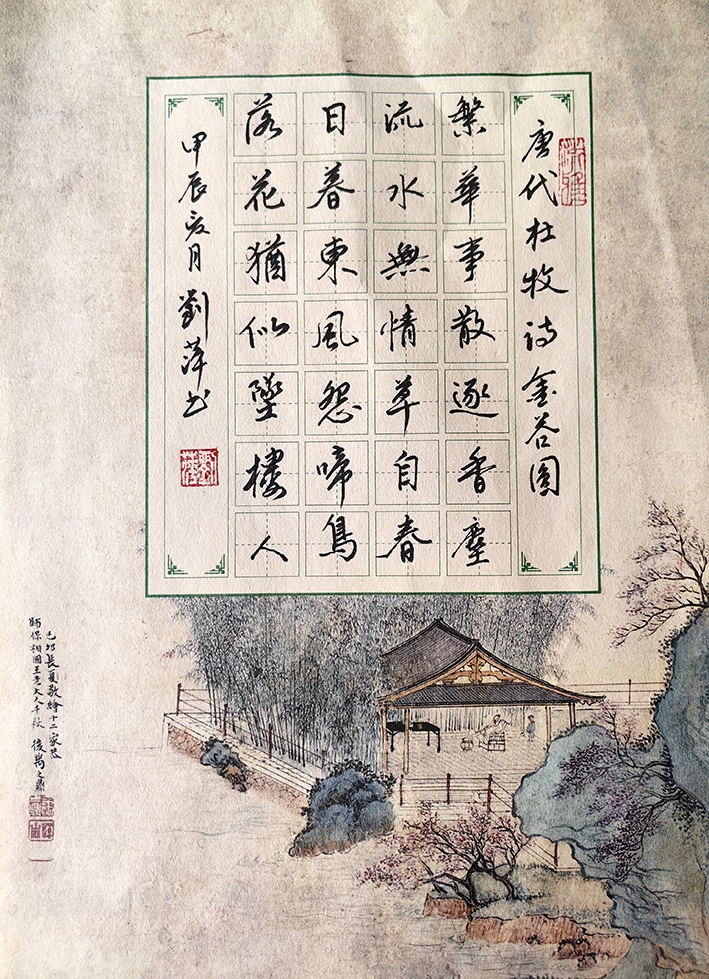 唐代杜牧诗金谷園
繁華事散逐香塵
流水無情草自春
日暮東風怨啼鳥
落花猶似墜樓人
甲辰亥月 劉萍书
己卯長夏敬繪十二
師保相國王老大人千秋 後禹之鼎